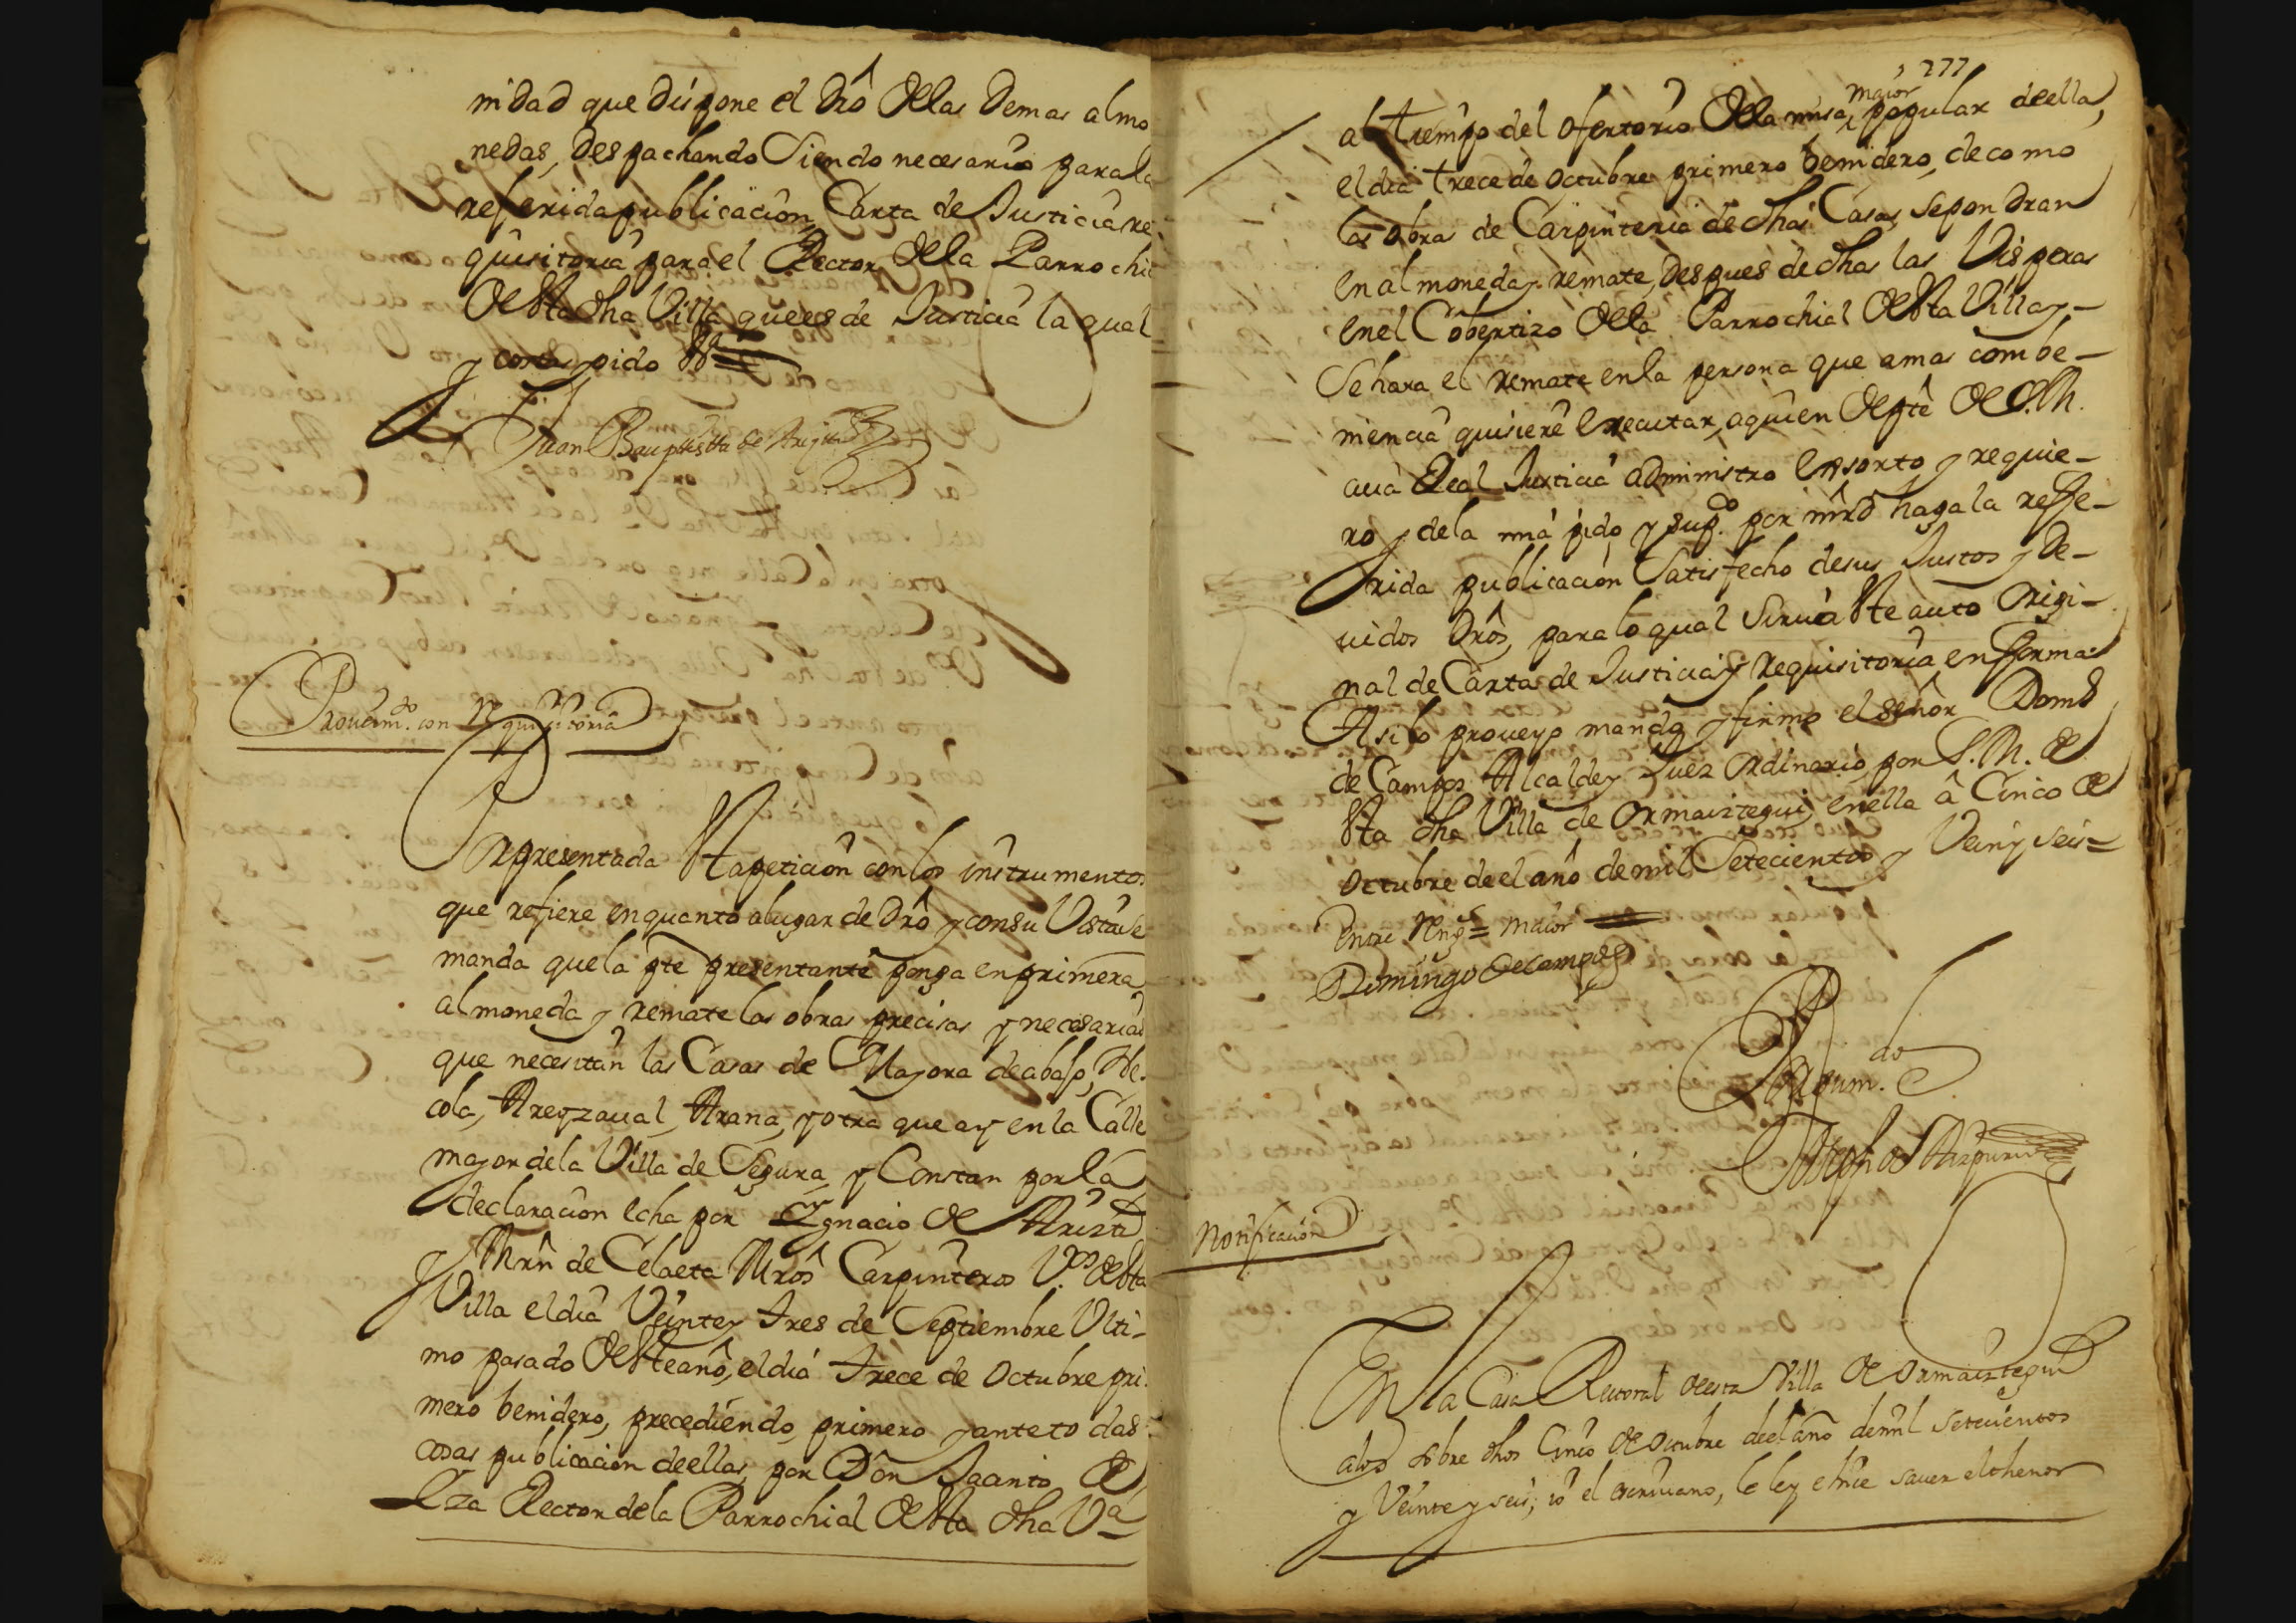 nidad que dispone el dró de las demas almo
nedas, despachando siendo necesario para la
referida publicacion, Carta de Justicia re
quisitoria para el Rector de la Parrochia
de esta dha Villa, que es de Justicia la qual
y costas pido &a
Juan Bauptista de
Proueim.to con requisitoria
Representada esta peticion con los instrumentos
que refiere en quanto a lugar de dró y con su Vista se
manda que la pte presentante ponga en primera
almoneda y remate las obras precisas y necesarias
que necesitan las Casas de Mayora de abajo, He.
cola, Areyzaual, Arana, y otra que ay en la Calle
mayor de la Villa de Segura, y Constan por la
declaracion echa por Ygnacio de Ariza
y Mrñ de Celaeta Mros Carpinteros V.os de esta
Villa el dia Veinte y tres de Septiembre Ulti-
mo pasado de este año, el dia trece de Octubre pri
mero benidero, precediendo, primero y ante todas
cosas publicacion de ellas, por Don Jacinto de
Eza Rector de la Parrochial de esta dha Va
277
al tiempo del ofertorio de la misa maior popular de ella,
el dia trece de octubre primero benidero, de como
las obras de Carpinteria de dhas Casas, se pondran
en almoneda y remate, despues de dhas las Visperas
en el Cobertizo de la Parrochial de esta Villa y -
Se hara el remate en la persona que a mas combe-
niencia quisiere executar, a quien de pte de S.M.
cuia Real Justicia administro exsorto y requie-
ro y de la mia pido y sup.co por mrd haga la reffe-
rida publicacion satisfecho de sus Justos y de-
uidos drós, para lo qual sirua este auto origi-
nal de Carta de Justicia y requisitoria en fforma
Asi lo proueyo mando y firmo el señor Dom.o
de Campos Alcalde y Juez ordinario por S.M. de
esta dha Villa de Ormaiztegui, en ella â Cinco de
octubre de el año de mil Setecientos y Vein y seis =
Entre Reng.s = maior
Domingo de campos
Ante mi
Joseph de Aizpuru
Notificacion
En la Casa Rectoral de esta Villa de Ormaiztegui
a los sobre dhos Cinco de octubre de el año de mil setecientos
y Veinte y seis; yo el escriuano, le ley e hice sauer el thenor